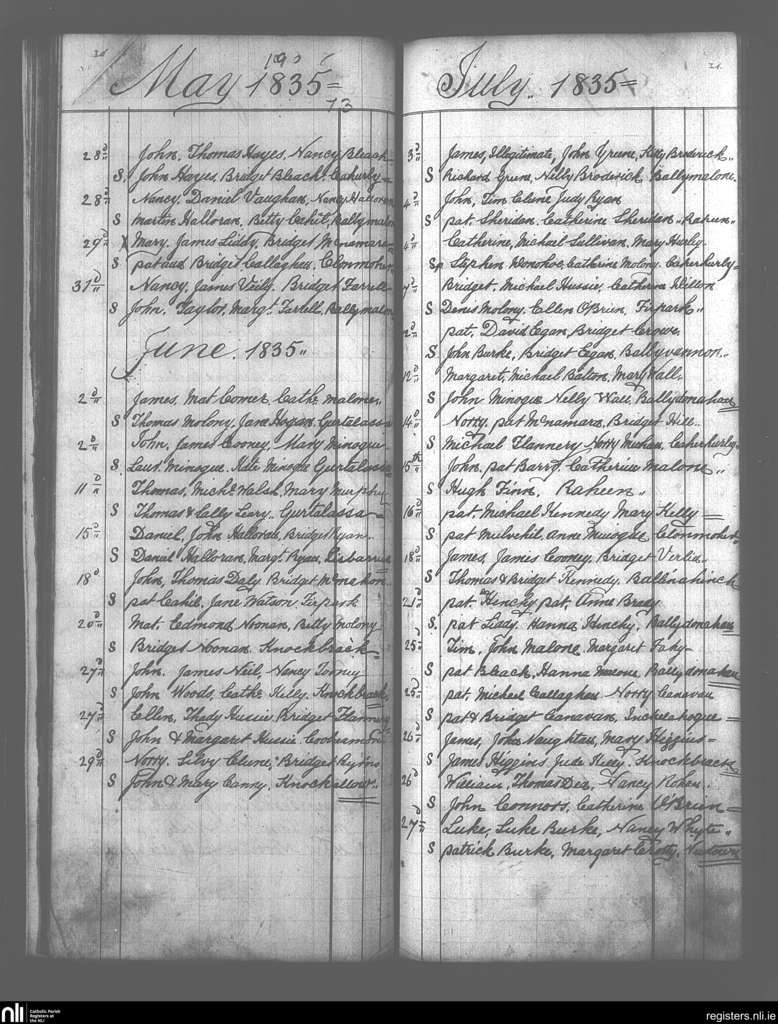 May 1835
73
28 John, Thomas Hayes, Nancy Bleach
S. John Hayes, Bridget Bleach. Caherhurly
28 Nancy, Daniel Vaughan, Nancy Halloran
S Martin Halloran, Betty Cahil, Ballymalon
29 X Mary, James Liddy, Bridget McNamara
S pat and Bridget Callaghan, Clonmoher
31 Nancy, James Vaily, Bridget Farrell
S John Taylor, Margt. Farrell, Ballymalon
June. 1835
2 James, Mat Comer, Cathe. malone,
S Thomas Molony, Jane Hogan, Gurtalassa
2 John, James Cooney, Mary Minogue
S Laus. Minogue, Kate Minogue Gurtalassa
11 Thomas, Michl. Walsh, Mary Murphy
S Thomas & Celly Lury, Gurtalassa
15 Daniel, John Halloran, Bridget Ryan
S Daniel Halloran, Margt. Ryan, Lisbarreen
18 John, Thomas Daly, Bridget McMahon
S pat Cahil, Jane Watson, Firpark
20 Mat, Edmond Noonan, Betty Molony
S Bridget Noonan, Knockbrack
27 John, James Neil, Nancy Torney
S John Woods, Cathe. Kelly, Knockbrack,
27 Ellen, Thady Hussie, Bridget Flannery
S John & Margaret Hussie,
29 Norry, Silvy Clune, Bridget Ryons
S John & Mary Canny, Knockallow
July. 1835
3 James, Illegitimate, John Grune, Kitty Broderick
S Richard Grune, Nelly Broderick, Ballymalone
4 John, Tim Clune Judy Ryan
S pat. Sheridan, Catherine Sheridan, Raheen
4 Catherine, Michael Sullivan, Mary Hurly
Sp Stephen Donohoe, Catherine Molony, Caherhurly
7 Bridget, Michael Hussie, Catherine Dillon
S Denis Molony, Ellen O'Brien, Firpark
pat, David Egan, Bridget Crowe,
S John Burke, Bridget Egan, Ballyvannon
12 Margaret, Michael Bolton, Mary Wall,
S John Minogue Nelly Wall, Ballydonahan
14 Norry, pat McNamara, Bridget Hill
S Michael Flannery Norry Mechan, Caherhurly
15th John, pat Barry, Catherine Malone
S Hugh Finn, Raheen
16 pat, Michael Kennedy Mary Kelly
S pat Mulvehil, Anne Minogue Clonmoher
18 James, James Cooney, Bridget
S Thomas & Bridget Kennedy, Ballinahinch
21 pat, Hinchy pat, Anne Brady
S. pat Liddy, Hanna Hinchy, Ballydonahan
25 Tim, John Malone, Margaret Fahy
S pat Bleach, Hanna Malone, Ballydonahan
25 pat, Michael Callaghan Norry Canavan
S pat & Bridget Canavan, Inchalahogue
26 James, John Naughton, Mary Higgins
S James Higgins, Jude Kelly, Knockbrack
26 William, Thomas Dea, Nancy
S John Connors, Catherine O'Brien
27 Luke, Luke Burke, Nancy Whyte
S patrick Burke, Margaret Crotty, Newtown
nli
Catholic Parish
Registers at
the NLI
registers.nli.ie